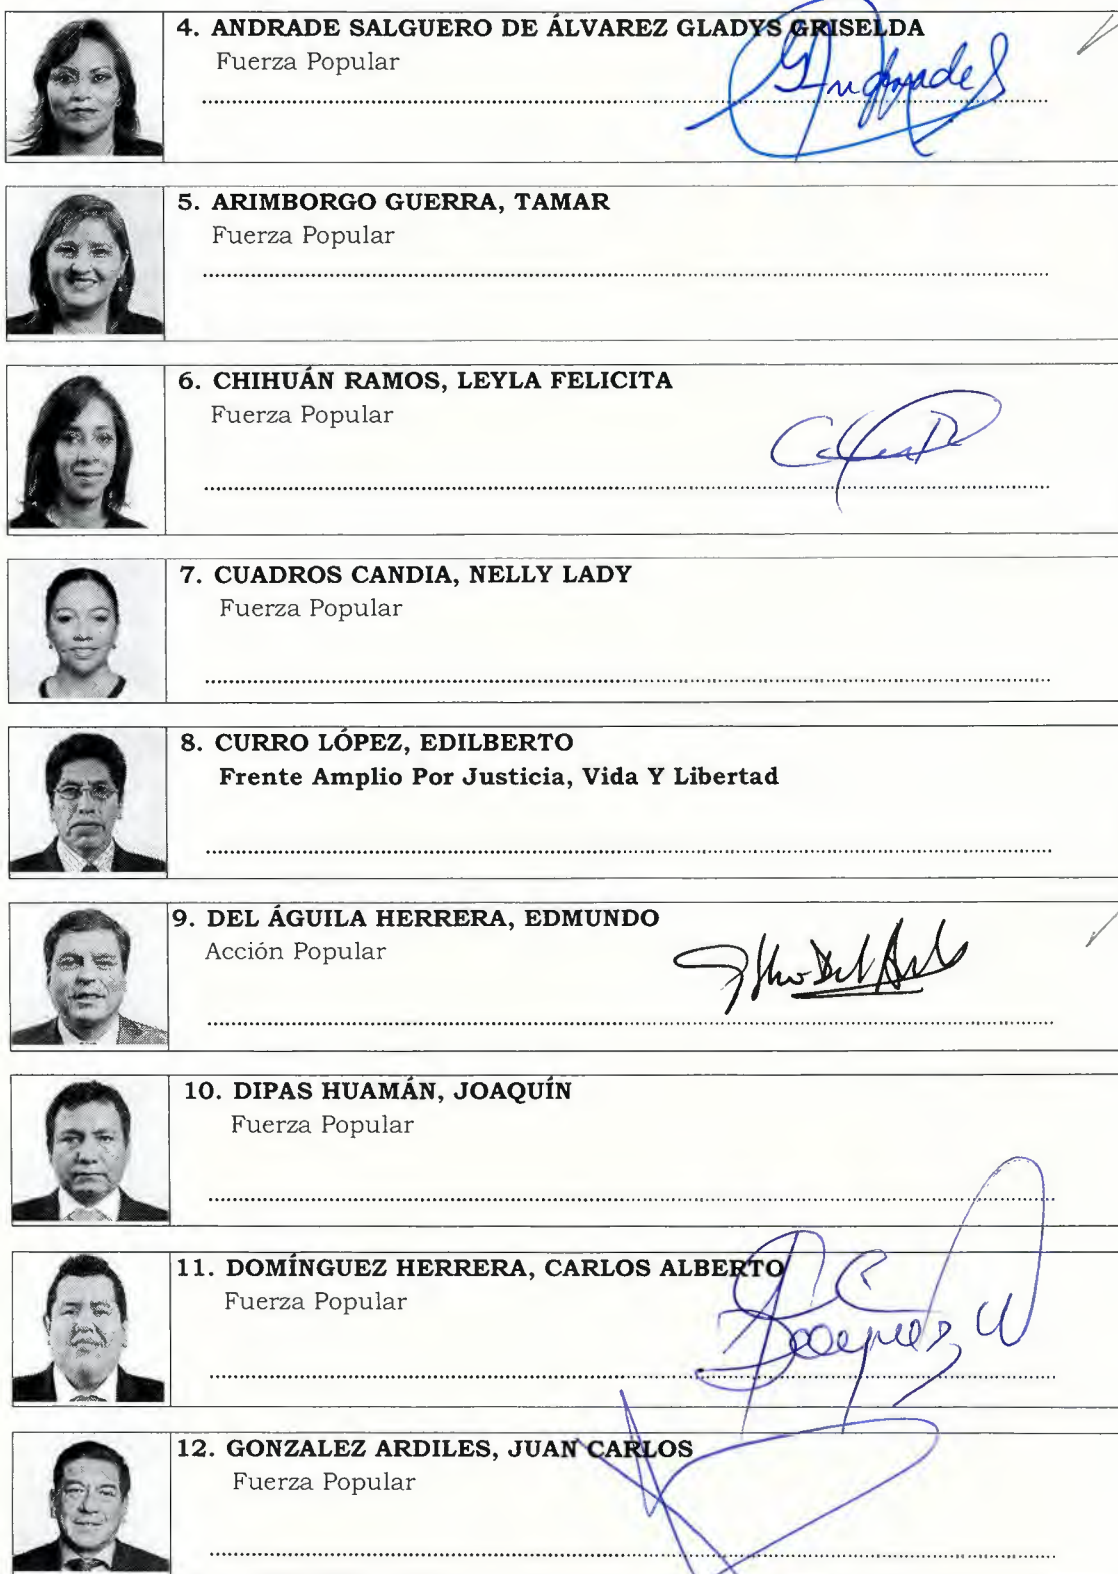 4. ANDRADE SALGUERO DE ÁLVAREZ GLADYS GRISELDA
Fuerza Popular
5. ARIMBORGO GUERRA, TAMAR
Fuerza Popular
6. CHIHUÁN RAMOS, LEYLA FELICITA
Fuerza Popular
7. CUADROS CANDIA, NELLY LADY
Fuerza Popular
8. CURRO LÓPEZ, EDILBERTO
Frente Amplio Por Justicia, Vida Y Libertad
9. DEL ÁGUILA HERRERA, EDMUNDO
Acción Popular
10. DIPAS HUAMÁN, JOAQUÍN
Fuerza Popular
11. DOMÍNGUEZ HERRERA, CARLOS ALBERTO
Fuerza Popular
12. GONZALEZ ARDILES, JUAN CARLOS
Fuerza Popular